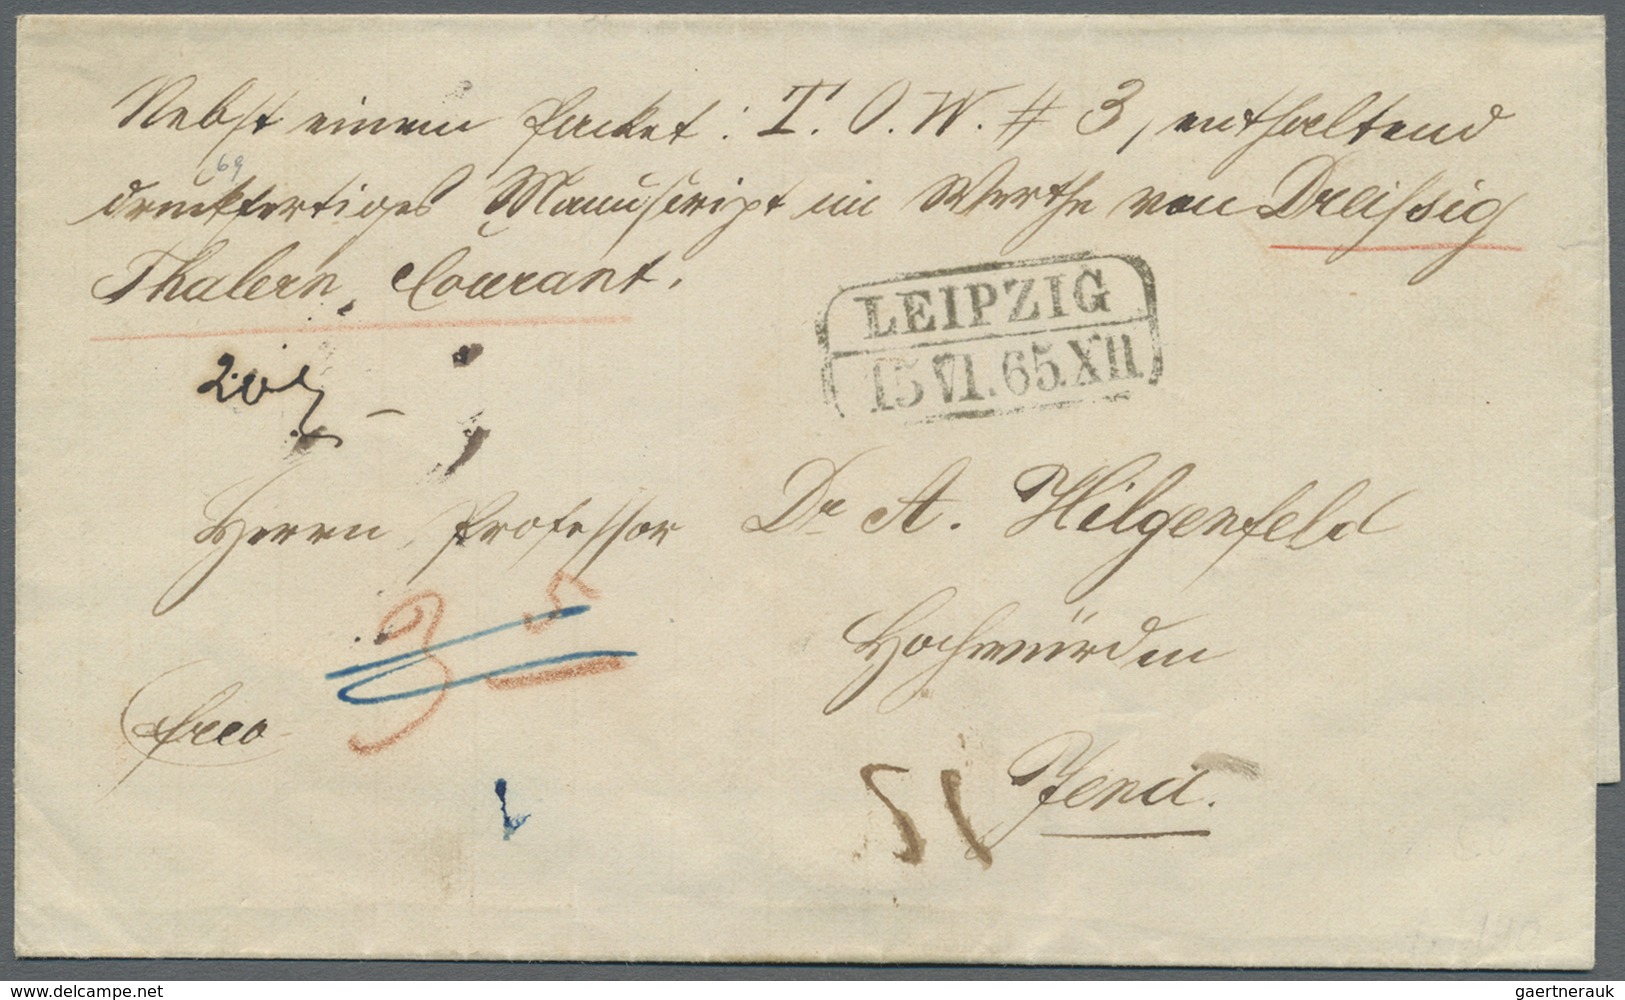 Nebst einem Packet: T. O. W. # 3, enthaltend
69
druckfertiges Manuscript im Werthe von Dreissig
Thalern Courant.
LEIPZIG
15 VI. 65. XII
Herrn Professor Dr A. Hilgenfeld
Hochwürden
frco
51
Jena.
delcampe.net
gaertnerauk